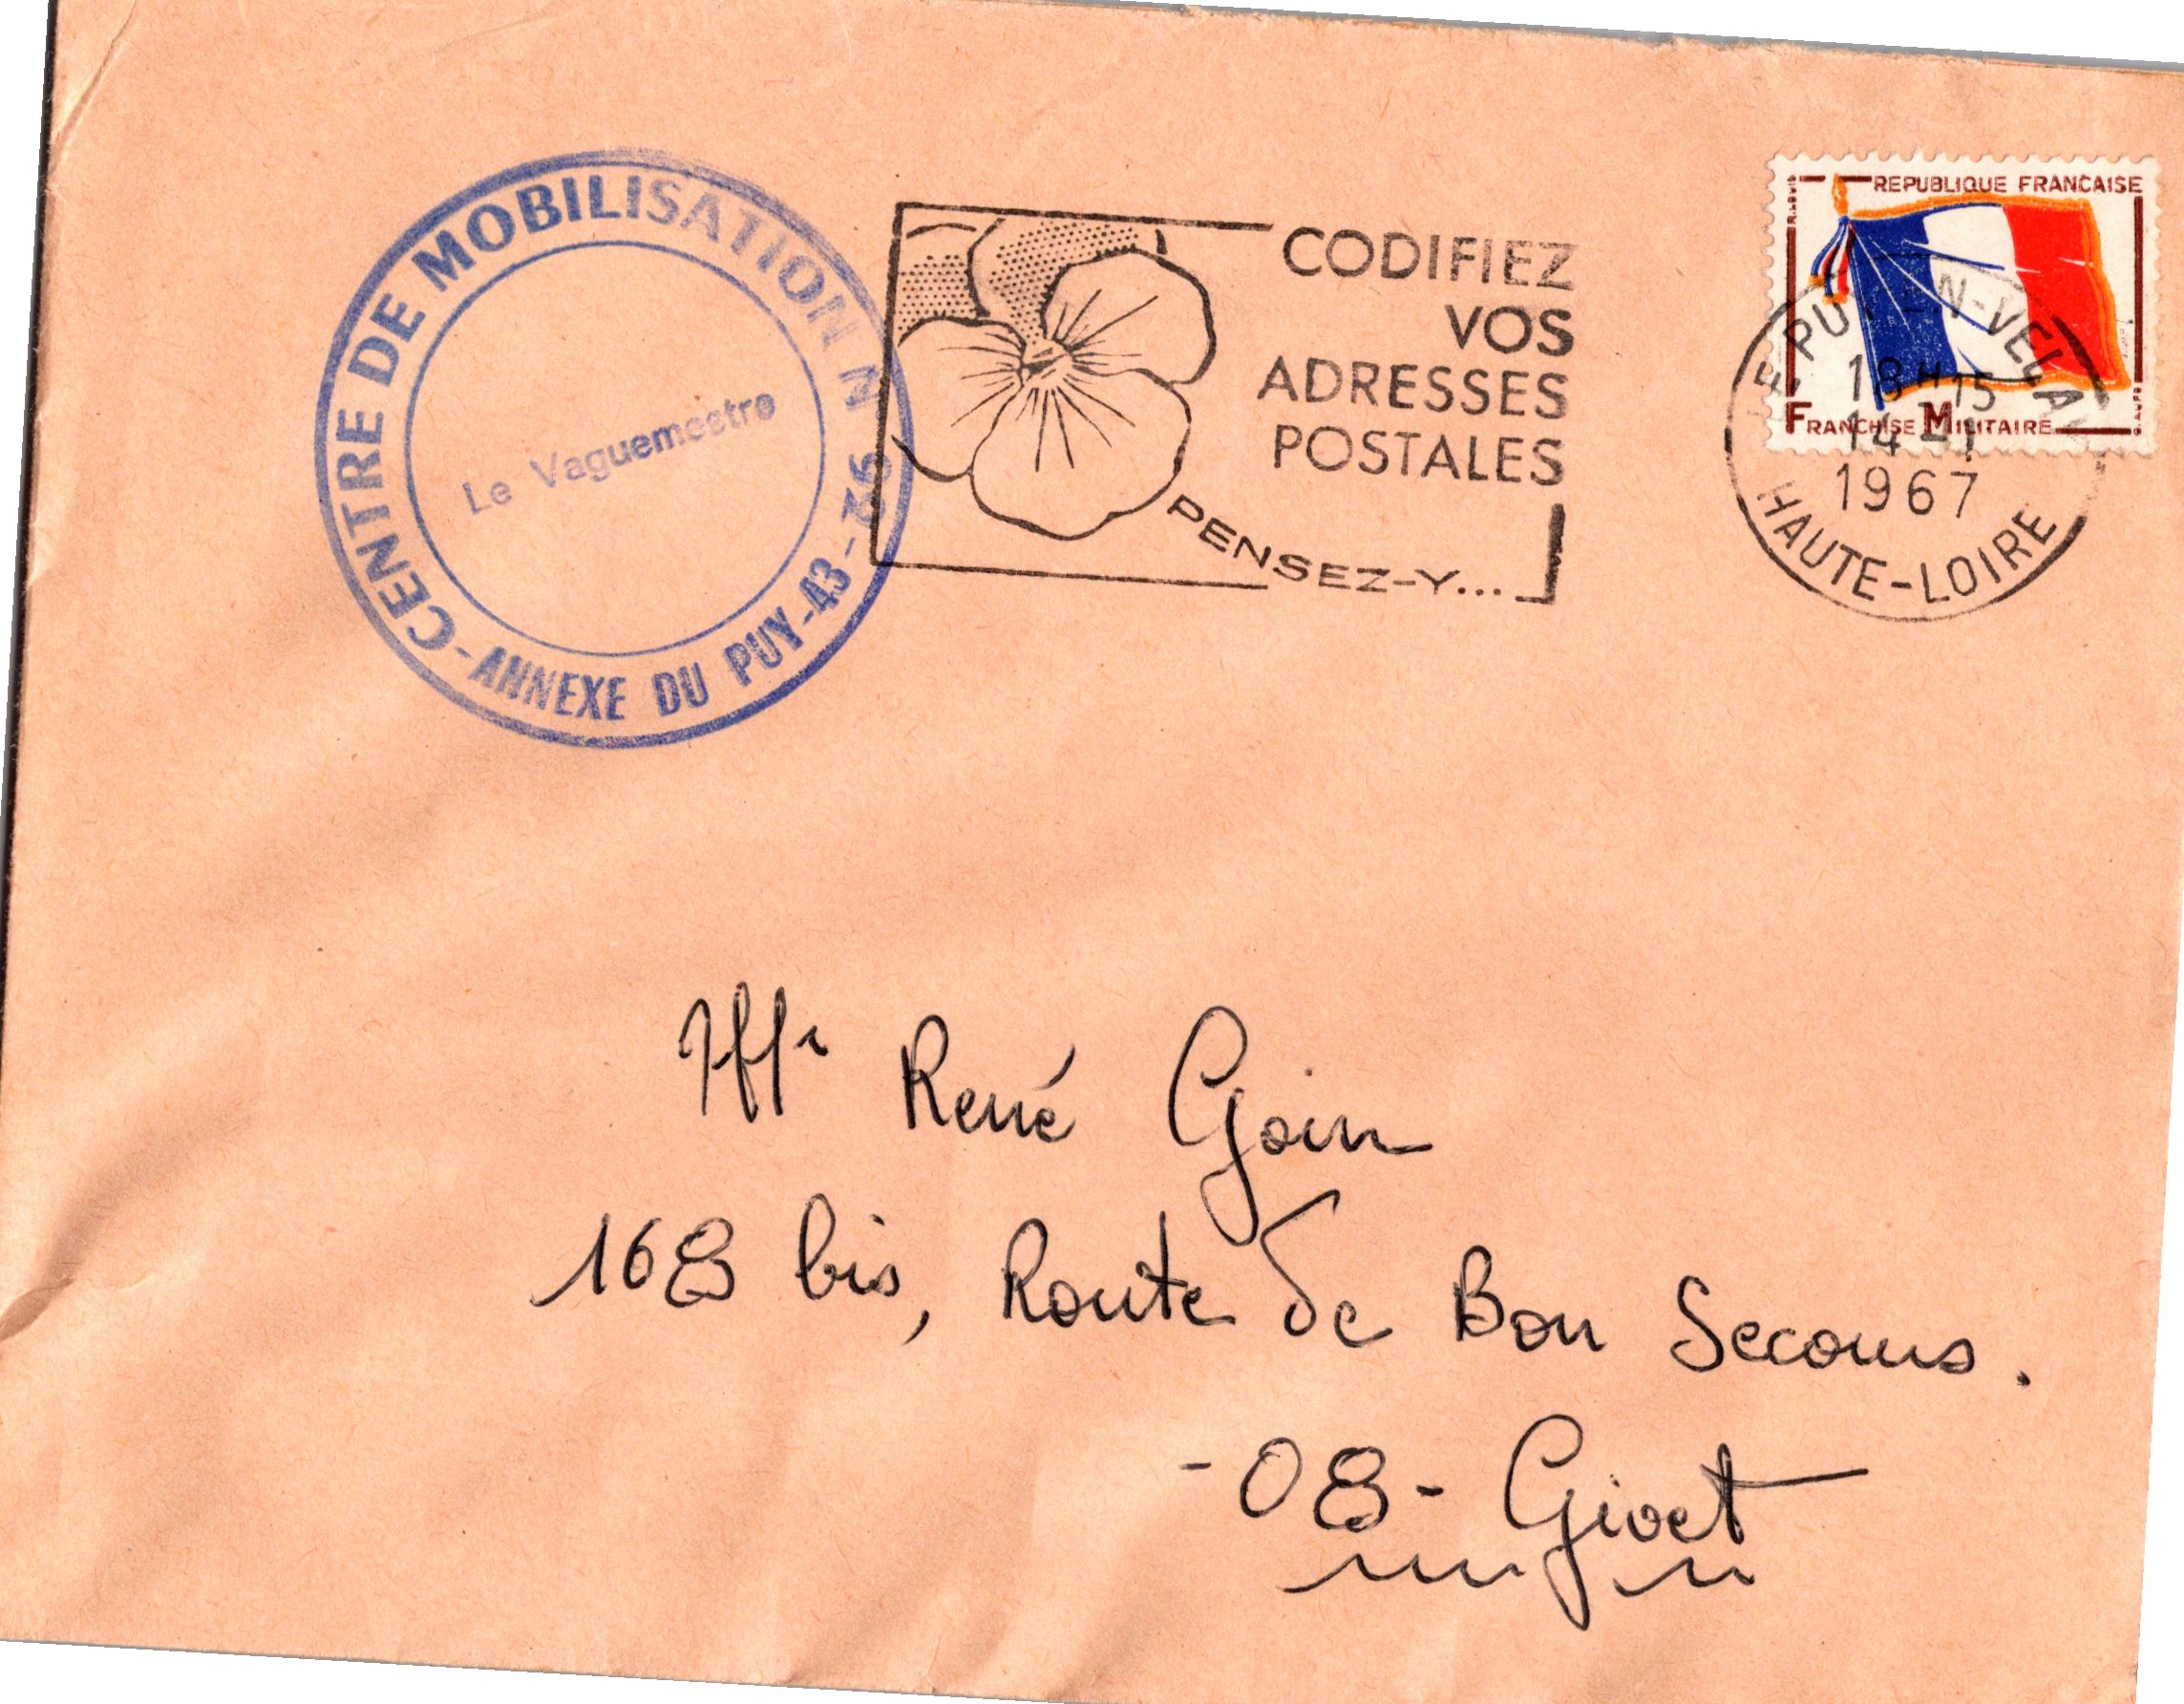 CENTRE DE MOBILISATION N 92 - ANNEXE DU PUY-43-
Le Vaguemestre
CODIFIEZ
VOS
ADRESSES
POSTALES
PENSEZ-Y...
REPUBLIQUE FRANCAISE
FRANCHISE MILITAIRE
LE PUY-EN-VELAY
18H15
14-1
1967
HAUTE-LOIRE
René Goin
168 bis, Route de Bon Secours.
-08- Givet